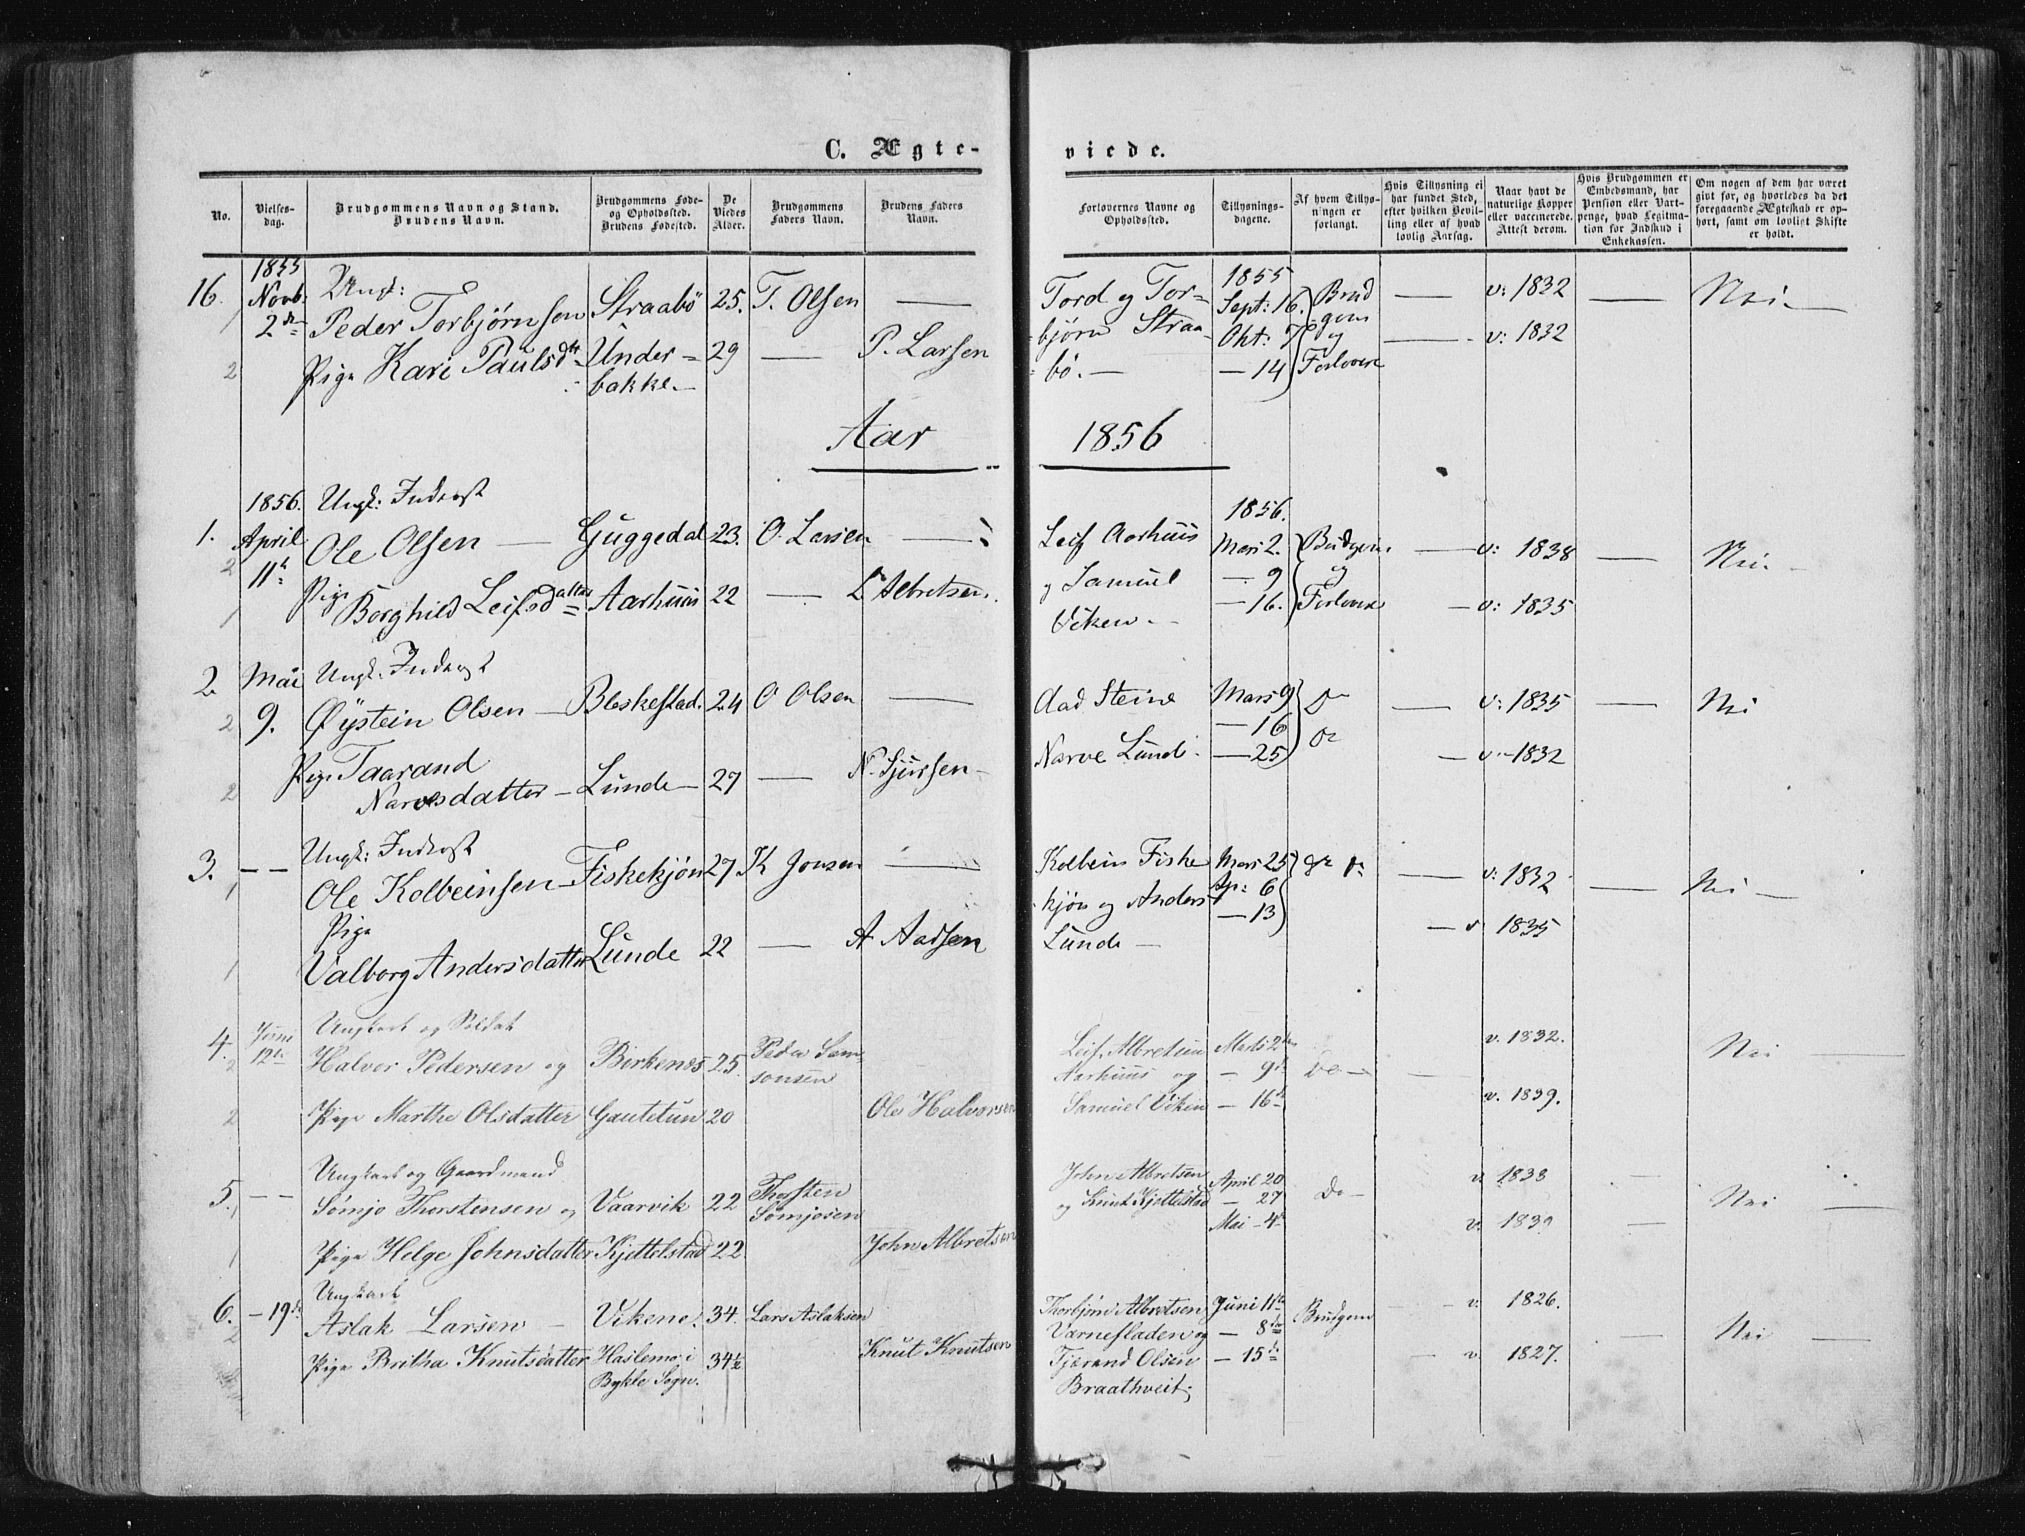 C. Ægte-
viede.
No.
Vielses-
dag.
Brudgommens Navn og Stand.
Brudens Navn.
Brudgommens Føde-
og Opholdssted.
Brudens Fødested.
De
Viedes
Alder.
Brudgommens
Faders Navn.
Brudens Faders
Navn.
Forlovernes Navne og
Opholdssted.
Tillysnings-
dagene.
Af hvem Tillys-
ningen er
forlangt.
Hvis Tillysning ei
har fundet Sted,
efter hvilken Bevil-
ling eller af hvad
lovlig Aarsag.
Naar havt de
naturlige Kopper
eller vaccinerede.
Attest derom.
Hvis Brudgommen er
Embedsmand, har
Pension eller Vart-
penge, hvad Legitima-
tion for Indskud i
Enkekassen.
Om nogen af dem har været
givt før, og hvorledes da det
foregaaende Ægteskab er op-
hørt, samt om lovligt Skifte
er holdt.
16. 1855 Novb: 2den
Ungk:
Peder Torbjørnsen Straabö 25. T. Olsen —
Pige Kari Paulsdtr Under- 29 — P. Larsen
bakke.—
Tord og Tor-
bjørn Straa-
bö.—
1855
Sept: 16.
Okt: 7
— 14
Brud
gom
og
Forlovere
— v: 1832 — Nei —
— v: 1832
Aar 1856
1. 1856. April 11te
Ungk: Inderst
Ole Olsen — Guggedal 23. O. Larsen —
Pige
Borghild Leifsdatter Aarhuus 22 — L Albretsen.
Leif Aarhuus
og Samuel
Viken.—
1856.
Mars 2.
— 9
— 16.
Brudgom.
og
Forlovere
— v: 1838 — Nei —
— v: 1835
2. Mai 9.
Ungk: Inderst
Øystein Olsen — Bleskestad. 24 O Olsen —
Pige Taarand
Narvesdatter — Lunde — 27 — N. Sjursen —
Aad Steine
Narve Lunde.
Mars 9
— 16
— 25
Do
Do
— v: 1835 — Nei
— v. 1832
3. — —
Ungk: Inderst
Ole Kolbeinsen — Fiskekjön 27 K Jonsen —
Pige
Valborg Andersdatter Lunde 22 — A Aadsen
Kolbein Fiske
kjön og Anders
Lunde —
Mars 25
Ap: 6
— 13
— v: 1832 — Nei —
— v 1835
4. Juni 12te
Ungkarl og Soldat
Halver Pedersen og Birkenes 25. Peder Sam-
sonsen
Pige Marthe Olsdatter Gautetun 20
Ole Halvorsen
Leif Albretsen
Aarhuus og
Samuel Viken
Marts 2den
— 9de
— 16de
Do —
— v. 1832. Nei —
v. 1839.
5. — —
Ungkarl og Gaardmand
Sömjo Thorstensen og Vaarvik 22 Thorsten
Sömjosen
Pige Helge Johnsdatter Kjettelstad 22.
John Albretsen
John Albretsen
og Knut Kjettelstad
April 20
— 27
Mai — 4de
Do —
v. 1833 — Nei —
v. 1839 —
6. — 19de
Ungkarl
Aslak Larsen — Vikene. 34. Lars Aslaksen
Pige Britha Knutsdatter Haslemo i 34½
Bykle Sogn.
Knut Knutsen
Thorbjörn Albretsen
Værnesfladen og
Tjærand Olsen
Braathveit;
Juni 11te
— 8de
— 15de
Brudgom
— v. 1826. — Nei —
— v. 1827.